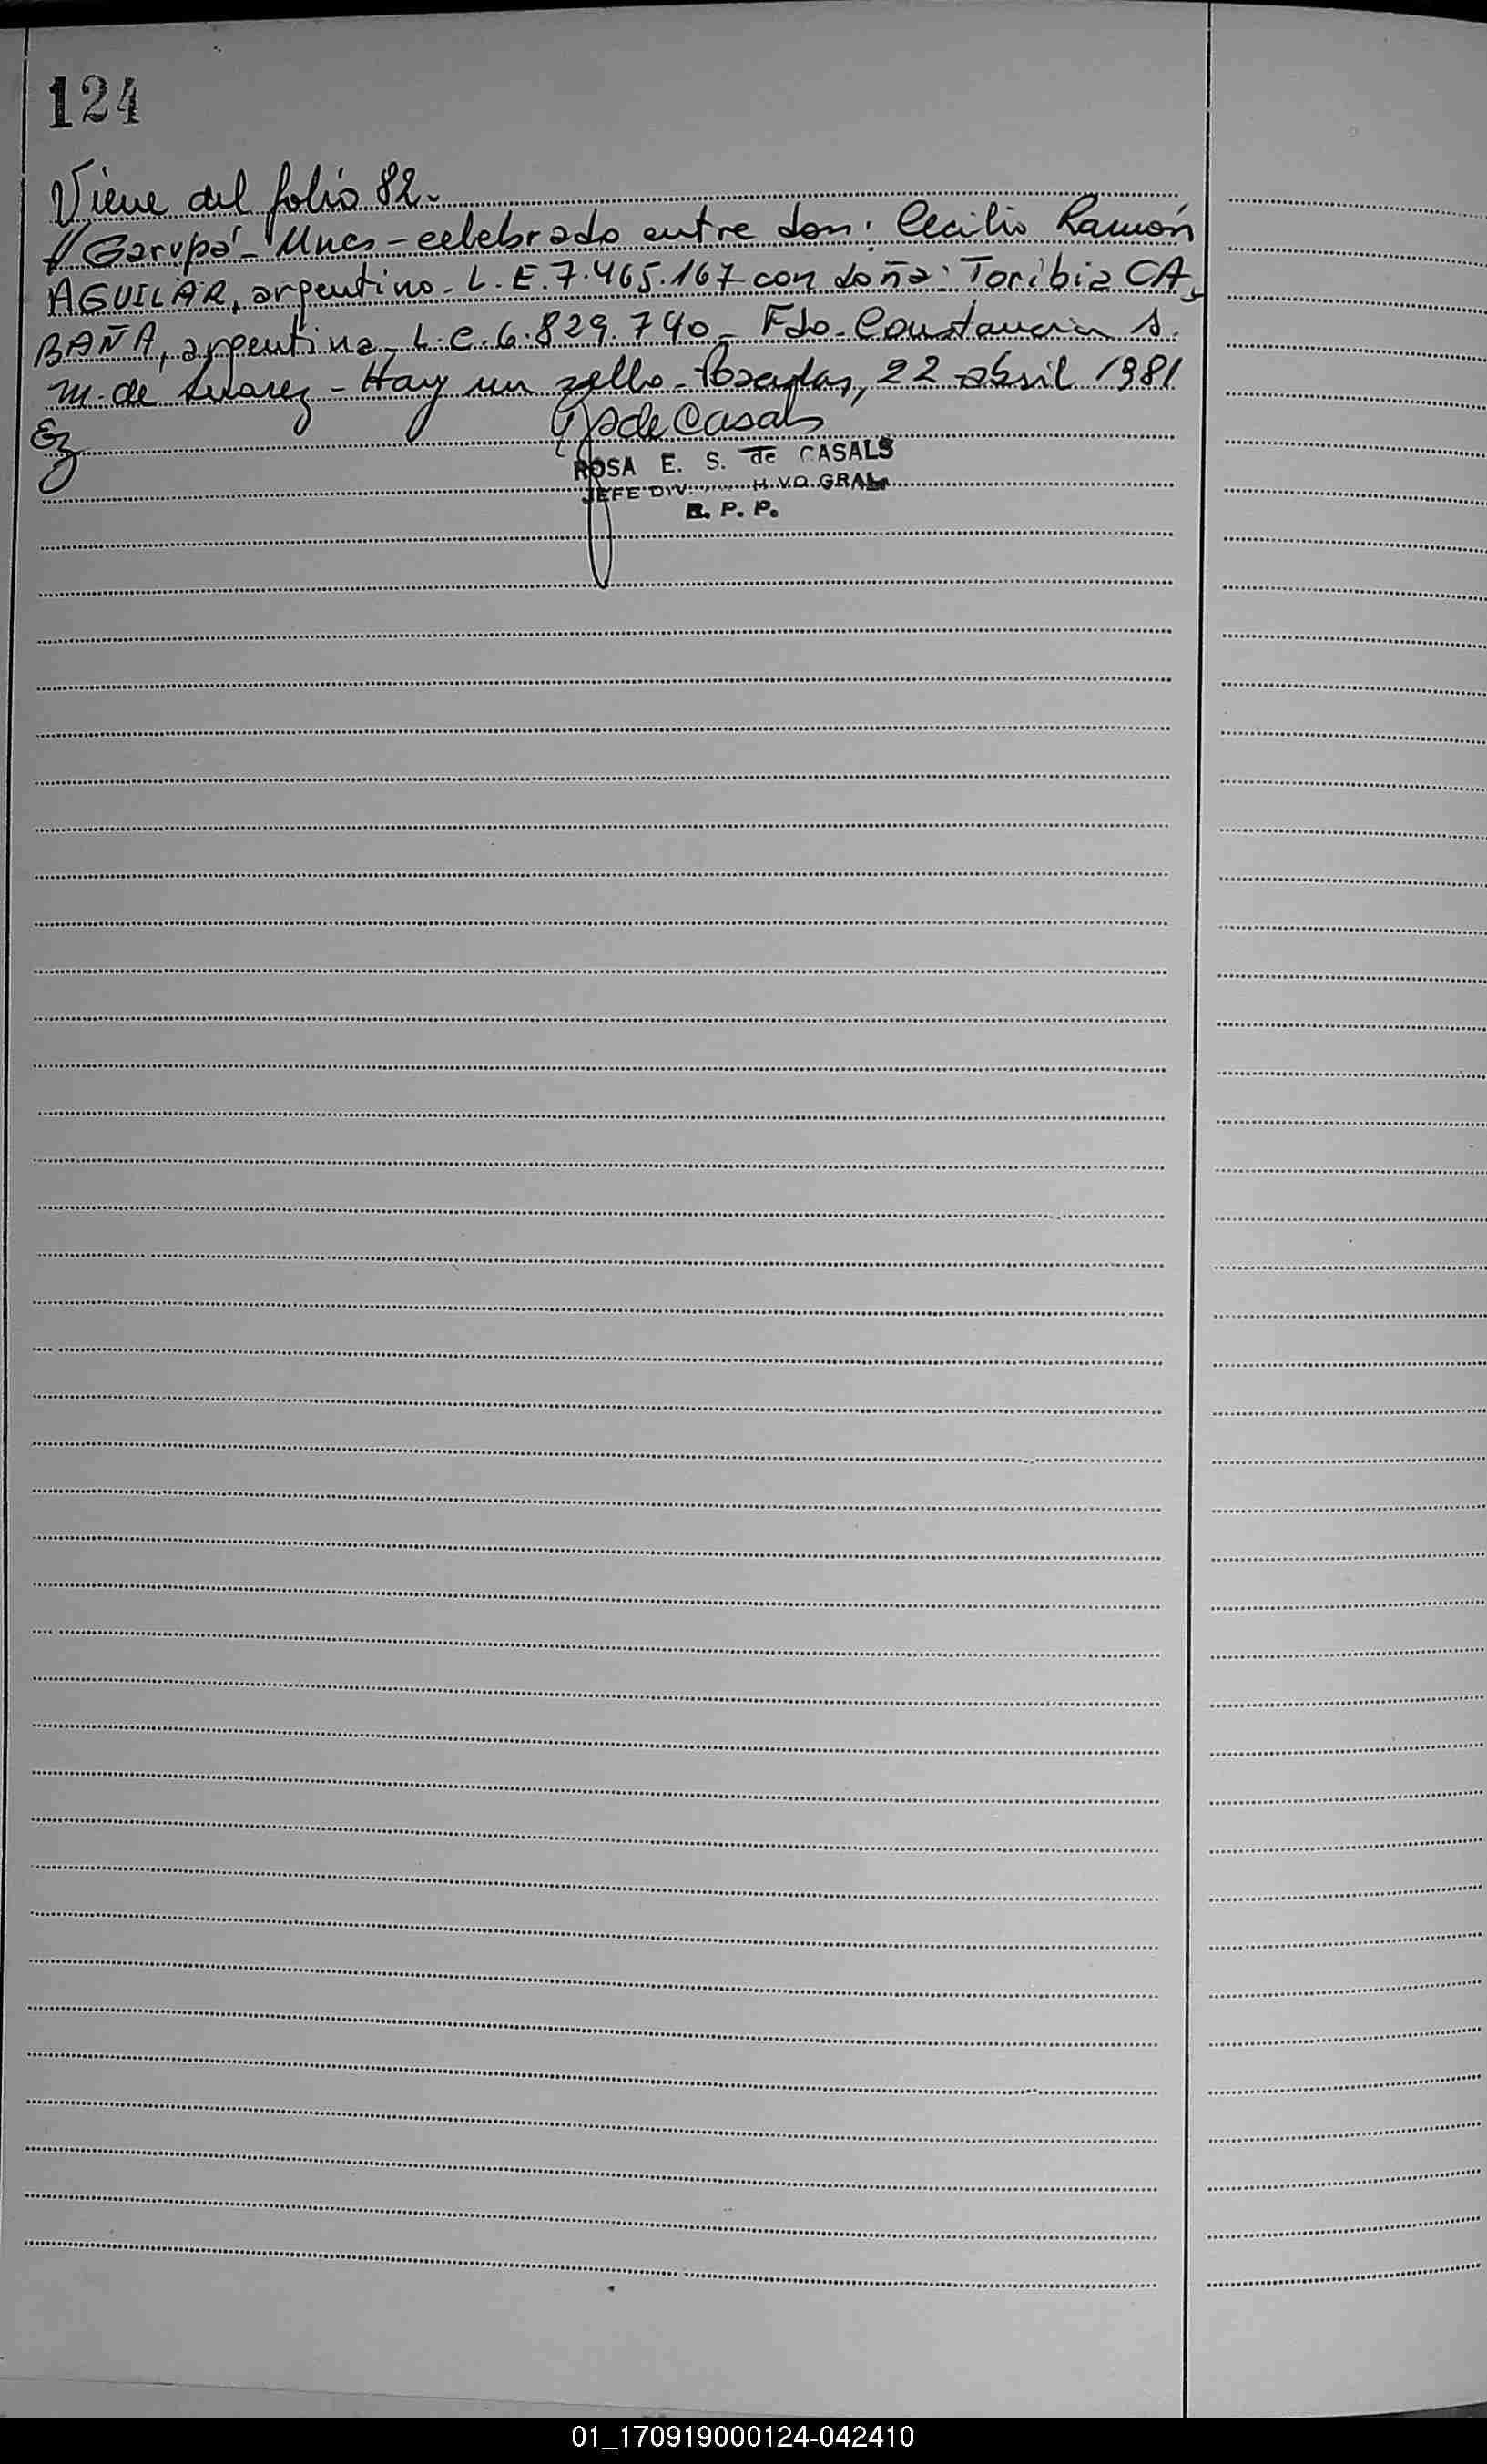 124
Viene del folio 82.
//Garupá - Mnes - celebrado entre don: Cecilio Ramón
AGUILAR, argentino - L.E. 7.465.167 con doña: Toribia CA-
BAÑA, argentina - L.C. 6.829.740 - Fdo. Constancia S.
M. de Suarez - Hay un sello - Posadas, 22 abril 1981
Ez
de Casals
ROSA E. S. de CASALS
JEFE DIV. H.VO GRAL
R. P. P.
01_170919000124-042410